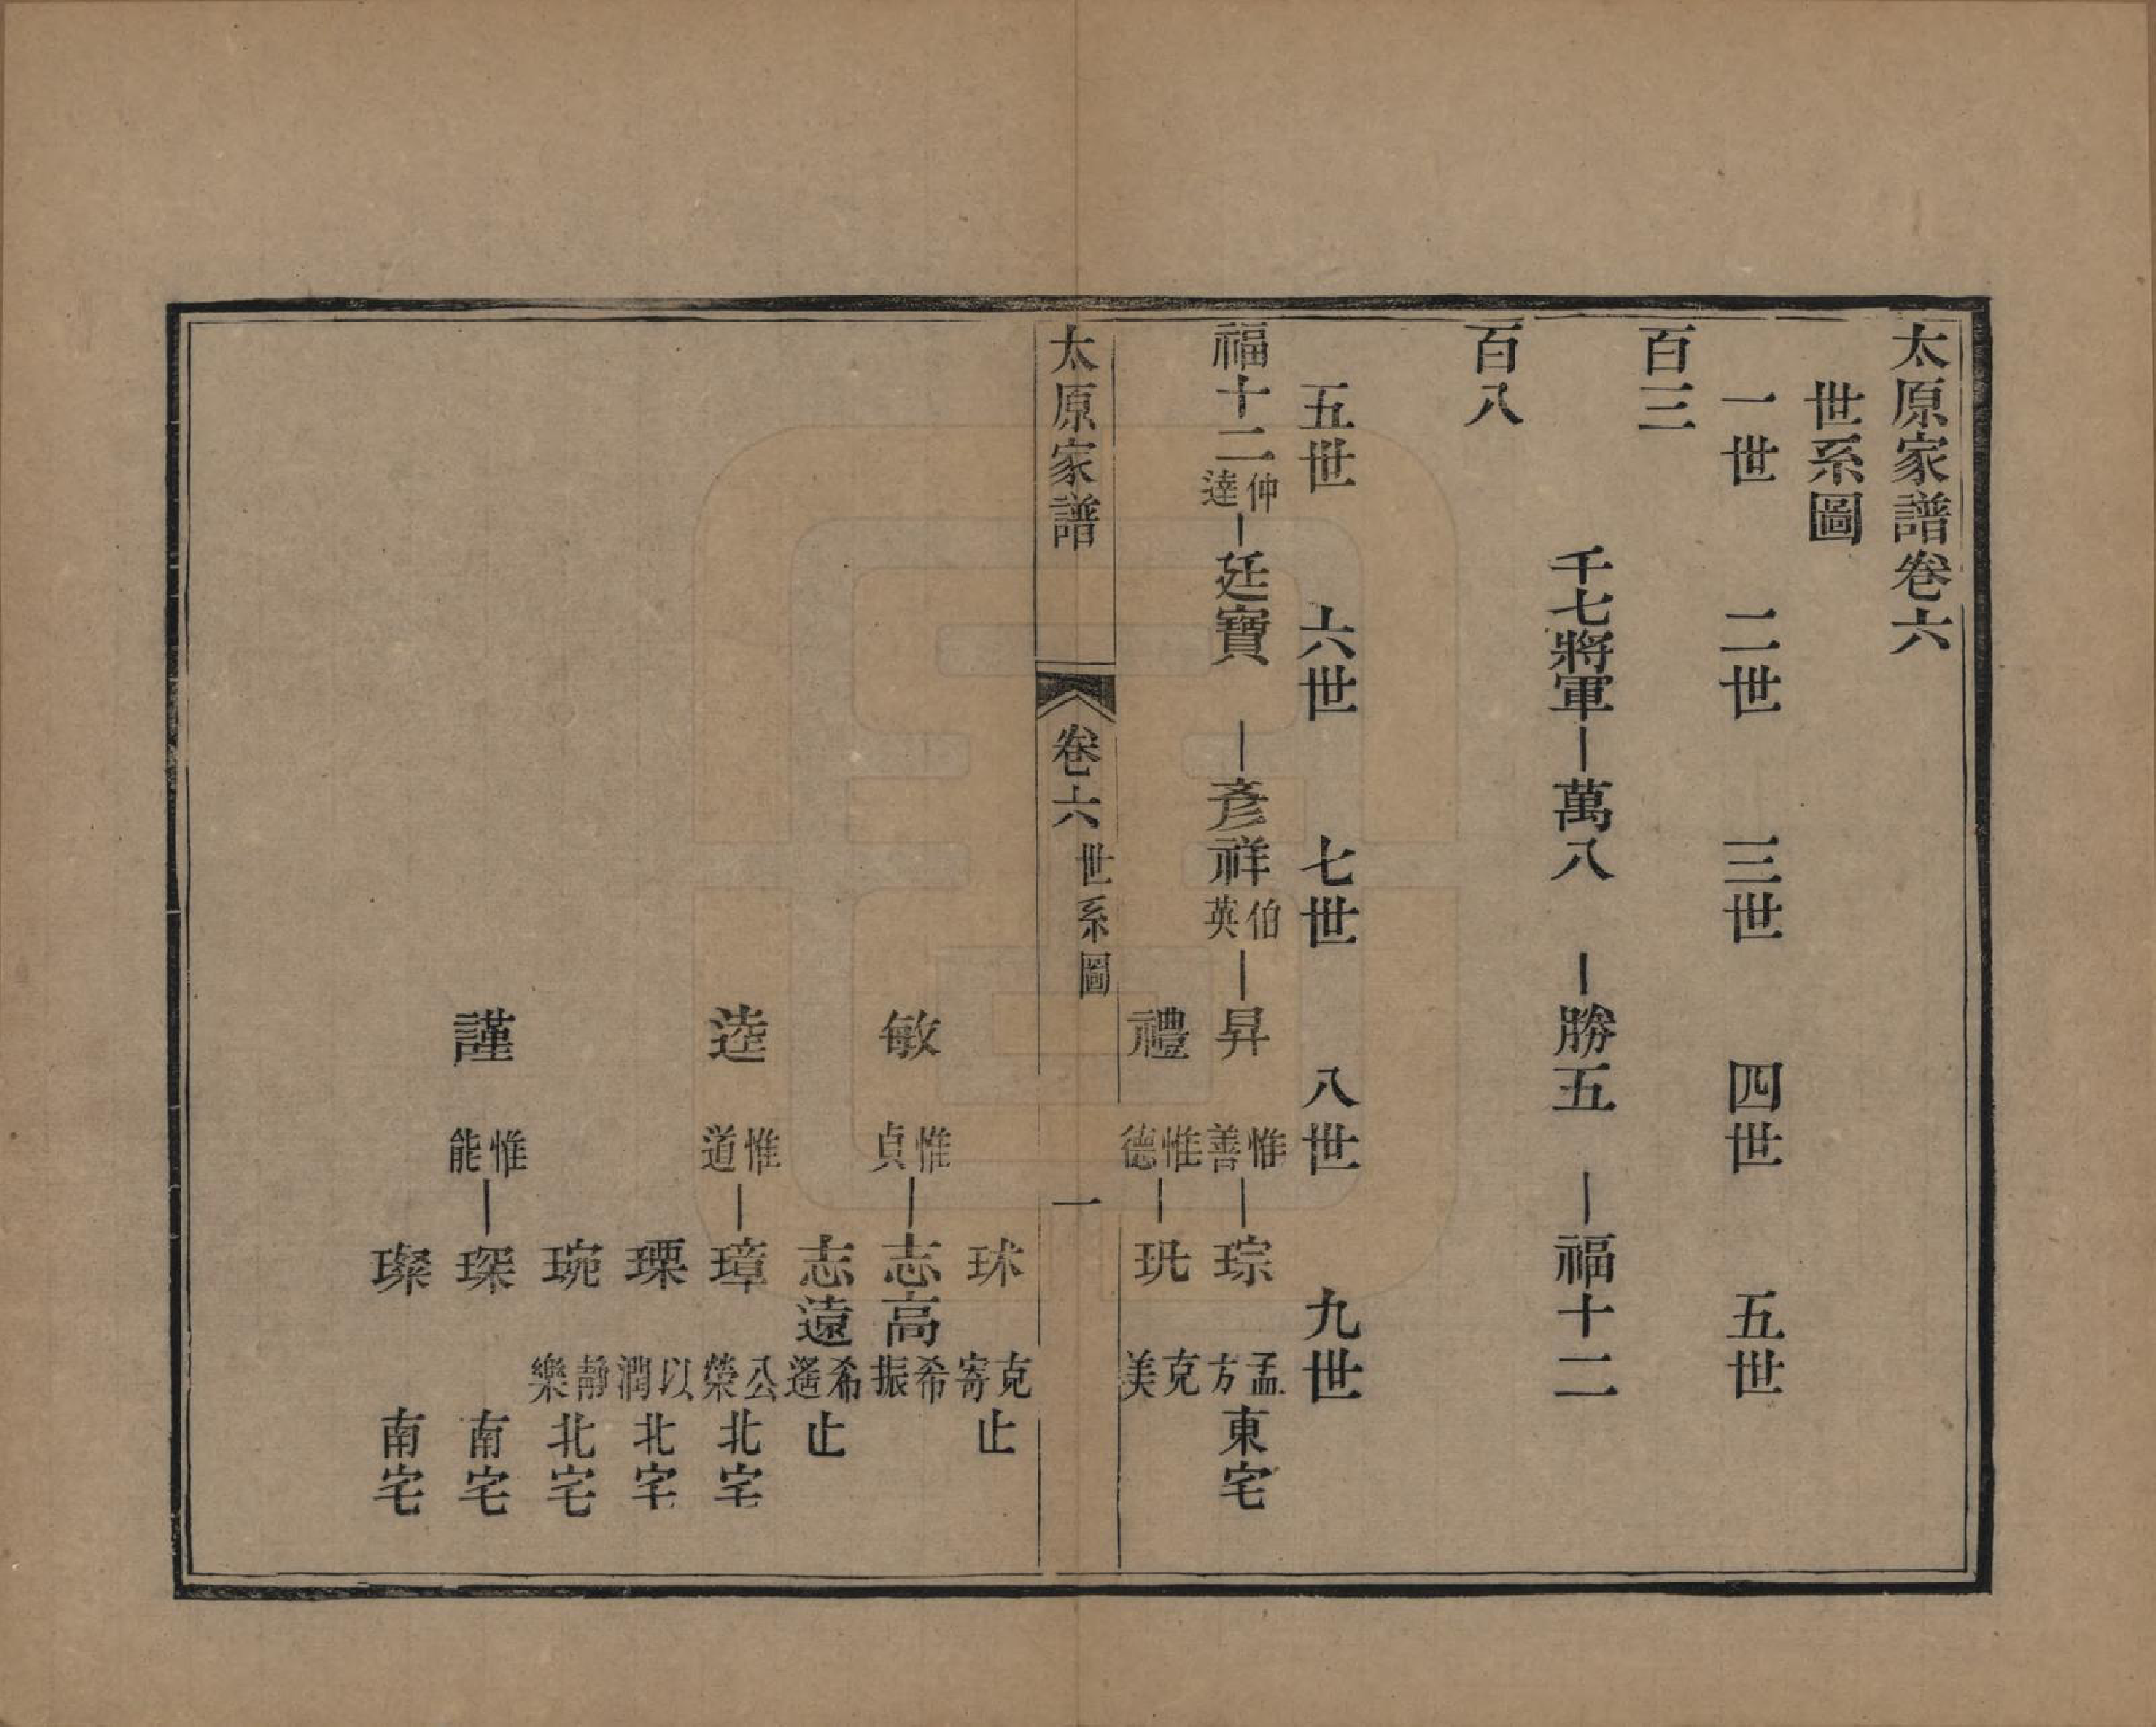 太原家譜卷六
世系圖
一世　二世　三世　四世　五世
百三
千七將軍—萬八　—勝五　—福十二
百八
五世　六世　七世　八世　九世
福十二仲逵—廷寶　—彥祥伯英—昇惟善—琮孟方東宅
禮惟德—玭克美
太原家譜　卷六世系圖　一
球克寄止
敏惟貞—志高希振
志遠希遙止
逵惟道—璋公榮北宅
瑮以潤北宅
琬靜樂北宅
謹惟能—琛南宅
璨南宅